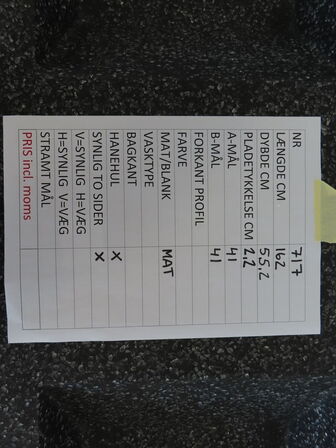 NR 717
LÆNGDE CM 162
DYBDE CM 55,2
PLADETYKKELSE CM 2,2
A-MÅL 41
B-MÅL 41
FORKANT PROFIL
FARVE
MAT/BLANK MAT
VASKTYPE
BAGKANT
HANEHUL X
SYNLIG TO SIDER X
V=SYNLIG H=VÆG
H=SYNLIG V=VÆG
STRAMT MÅL
PRIS incl. moms